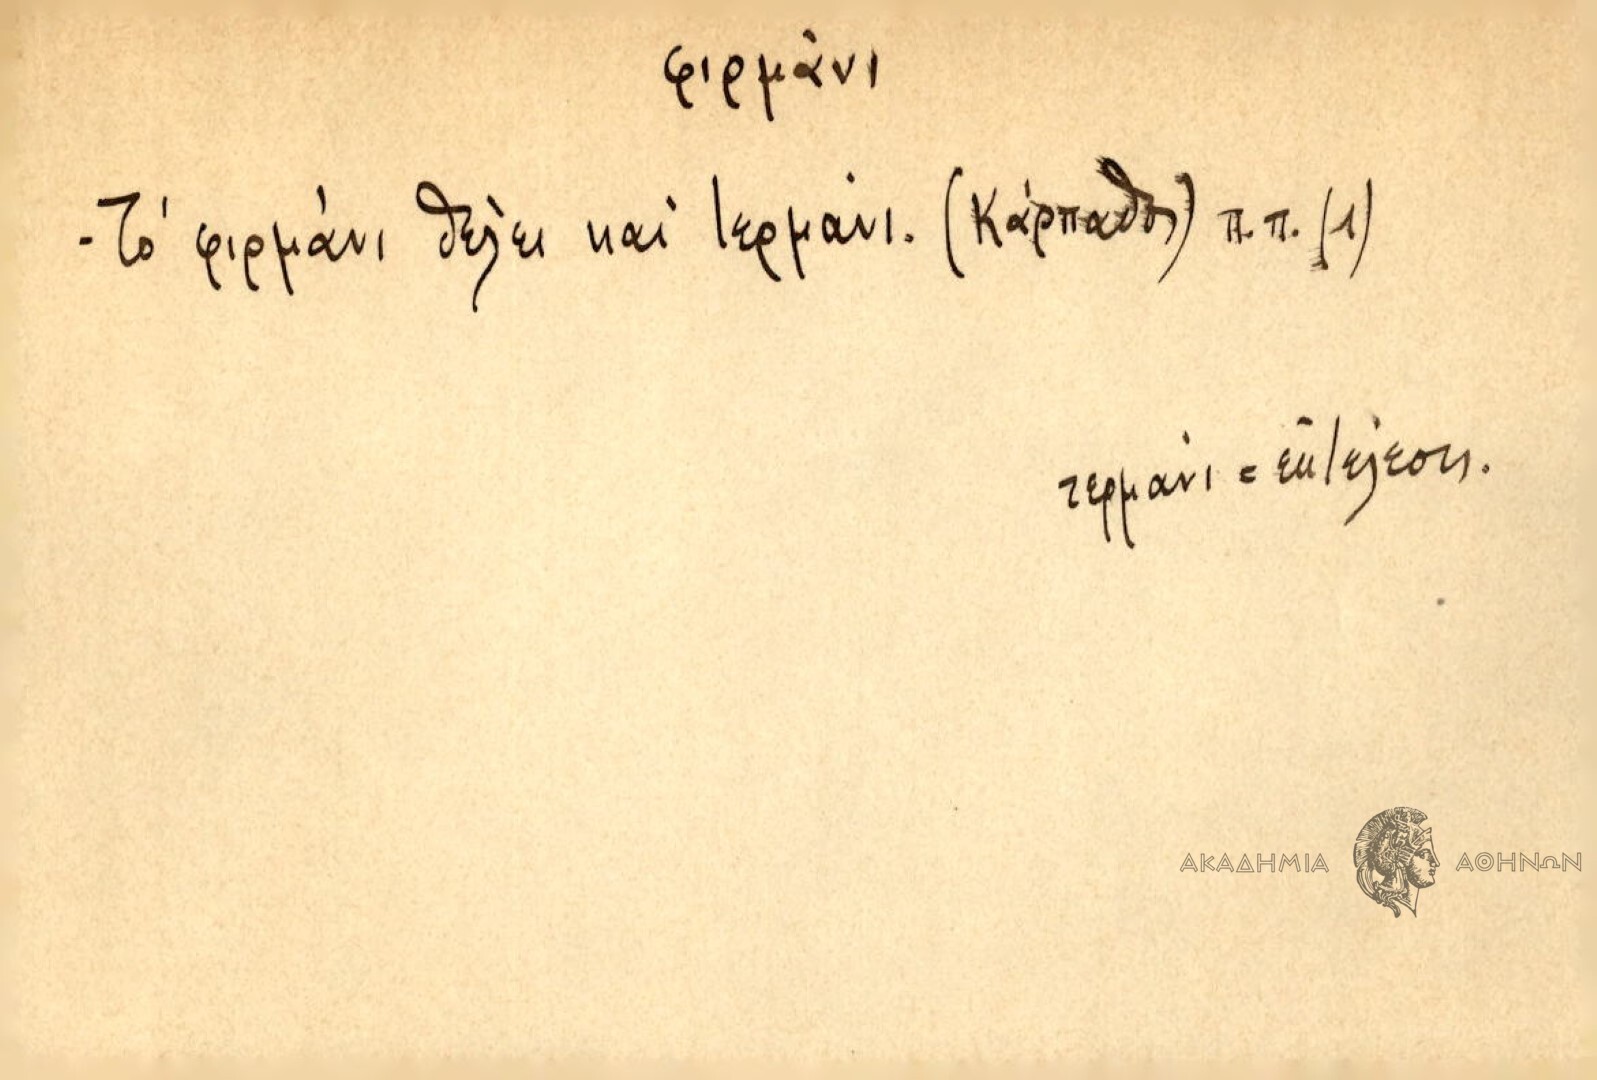 φιρμάνι
- Τὸ φιρμάνι θέλει καὶ τερμάνι. (Κάρπαθος) π.π. (1)
τερμάνι = ἐκτέλεσις.
ΑΚΑΔΗΜΙΑ ΑΘΗΝΩΝ